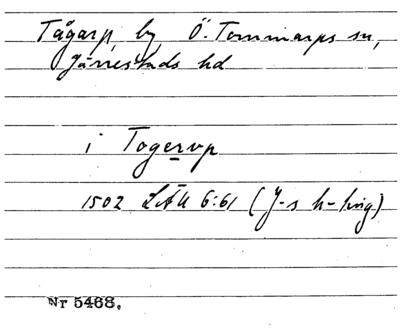 Tågarp, by Ö. Tommarps sn,
Järrestads hd
i Togerup
1502 LÄU 6:61 (J-s h-ting)
Nr 5468.